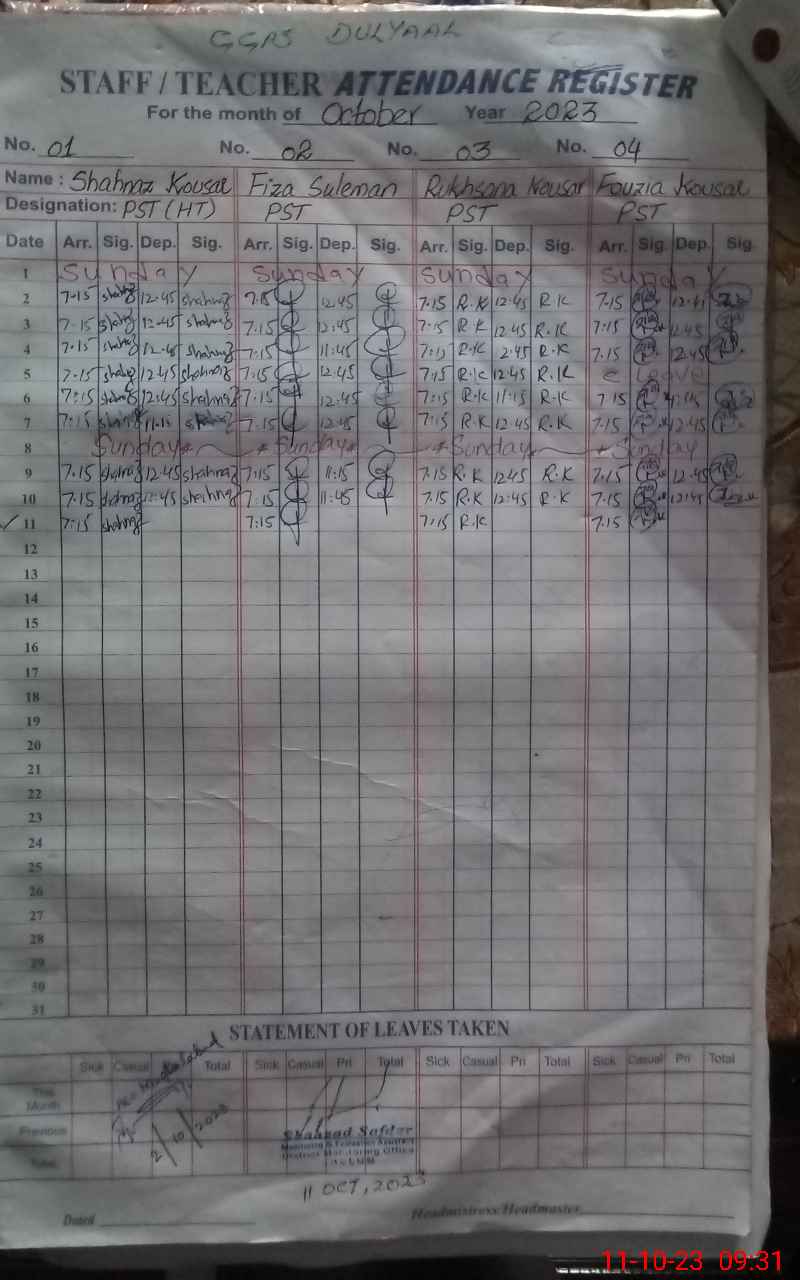 GGPS DULYAAL
STAFF / TEACHER ATTENDANCE REGISTER
For the month of October Year 2023
No. 01 No. 02 No. 03 No. 04
Name : Shahnaz Kousar Fiza Suleman Rukhsana Kousar Fouzia Kousar
Designation: PST (HT) PST PST PST
Date Arr. Sig. Dep. Sig. Arr. Sig. Dep. Sig. Arr. Sig. Dep. Sig. Arr. Sig. Dep. Sig.
1 Sunday Sunday Sunday Sunday
2 7.15 shahnaz 12.45 shahnaz 7.15 12.45 7.15 R.K 12.45 R.K 7.15
3 7.15 shahnaz 12.45 shahnaz 7:15 12:45 7:15 R.K 12.45 R.K 7:15 12.45
4 7.15 shahnaz shahnaz 7:15 11:45 7:15 R.K 2:45 R.K 7.15 12.45
5 7.15 shahnaz 12.45 shahnaz 7:15 12:45 7:15 R.K 12.45 R.K C Leave
6 7:15 shahnaz 12.45 shahnaz 7:15 12:45 7:15 R.K 11:15 R.K 7.15
7 7:15 shahnaz 11.15 shahnaz 7.15 12:45 7:15 R.K 12.45 R.K 7:15 12.45
8 Sunday Sunday Sunday Sunday
9 7.15 shahnaz 12.45 shahnaz 7:15 11:15 7:15 R.K 12.45 R.K 7:15 12.45
10 7:15 shahnaz 12:45 shahnaz 7:15 11:45 7.15 R.K 12:45 R.K 7.15 12:45
11 7:15 shahnaz 7:15 7:15 R.K 7.15
12
13
14
15
16
17
18
19
20
21
22
23
24
25
26
27
28
29
30
31
STATEMENT OF LEAVES TAKEN
Sick Casual Total Sick Casual Pri Total Sick Casual Pri Total Sick Casual Pri Total
This Month
Previous
Total
2/10/2023
Shahzad Safdar
Monitoring & Evaluation Assistant
District Monitoring Office
11 OCT, 2023
Dated
Headmistress/Headmaster
11-10-23 09:31